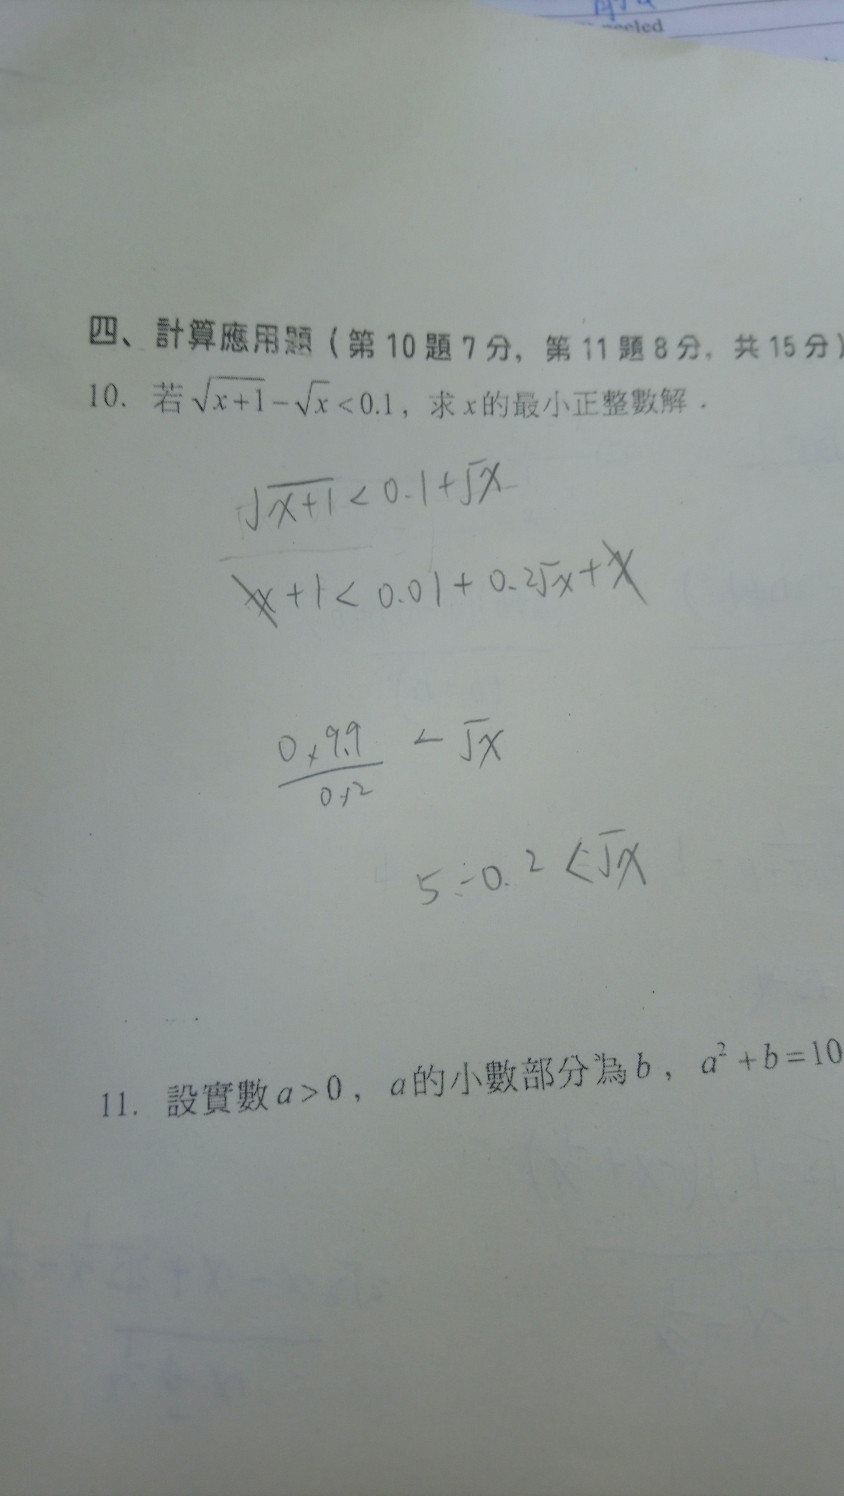 eeled
四、計算應用題（第10題7分，第11題8分，共15分）
10. 若√(x+1)-√x<0.1，求x的最小正整數解．
√(x+1) < 0.1+√x
x+1 < 0.01+0.2√x+x
0.99/0.2 < √x
5-0.2 <√x
11. 設實數a>0，a的小數部分為b，a²+b=10